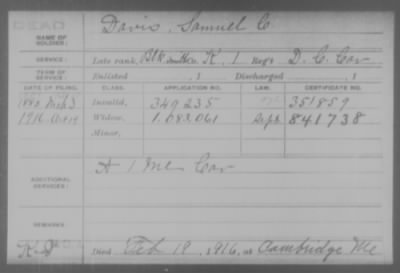 DEAD
NAME OF SOLDIER: Davis, Samuel C.
SERVICE: Late rank, Co. K, 1 Reg't D. C. Cav
TERM OF SERVICE: Enlisted , 1 Discharged , 1
DATE OF FILING. CLASS. APPLICATION NO. LAW. CERTIFICATE NO.
1883 Invalid, 349235 351859
1916 Widow, 1.083.061 Sept. 841738
Minor,
ADDITIONAL SERVICES: A 1 Me Cav
REMARKS:
Died Feb 19, 1916, at Cambridge Me